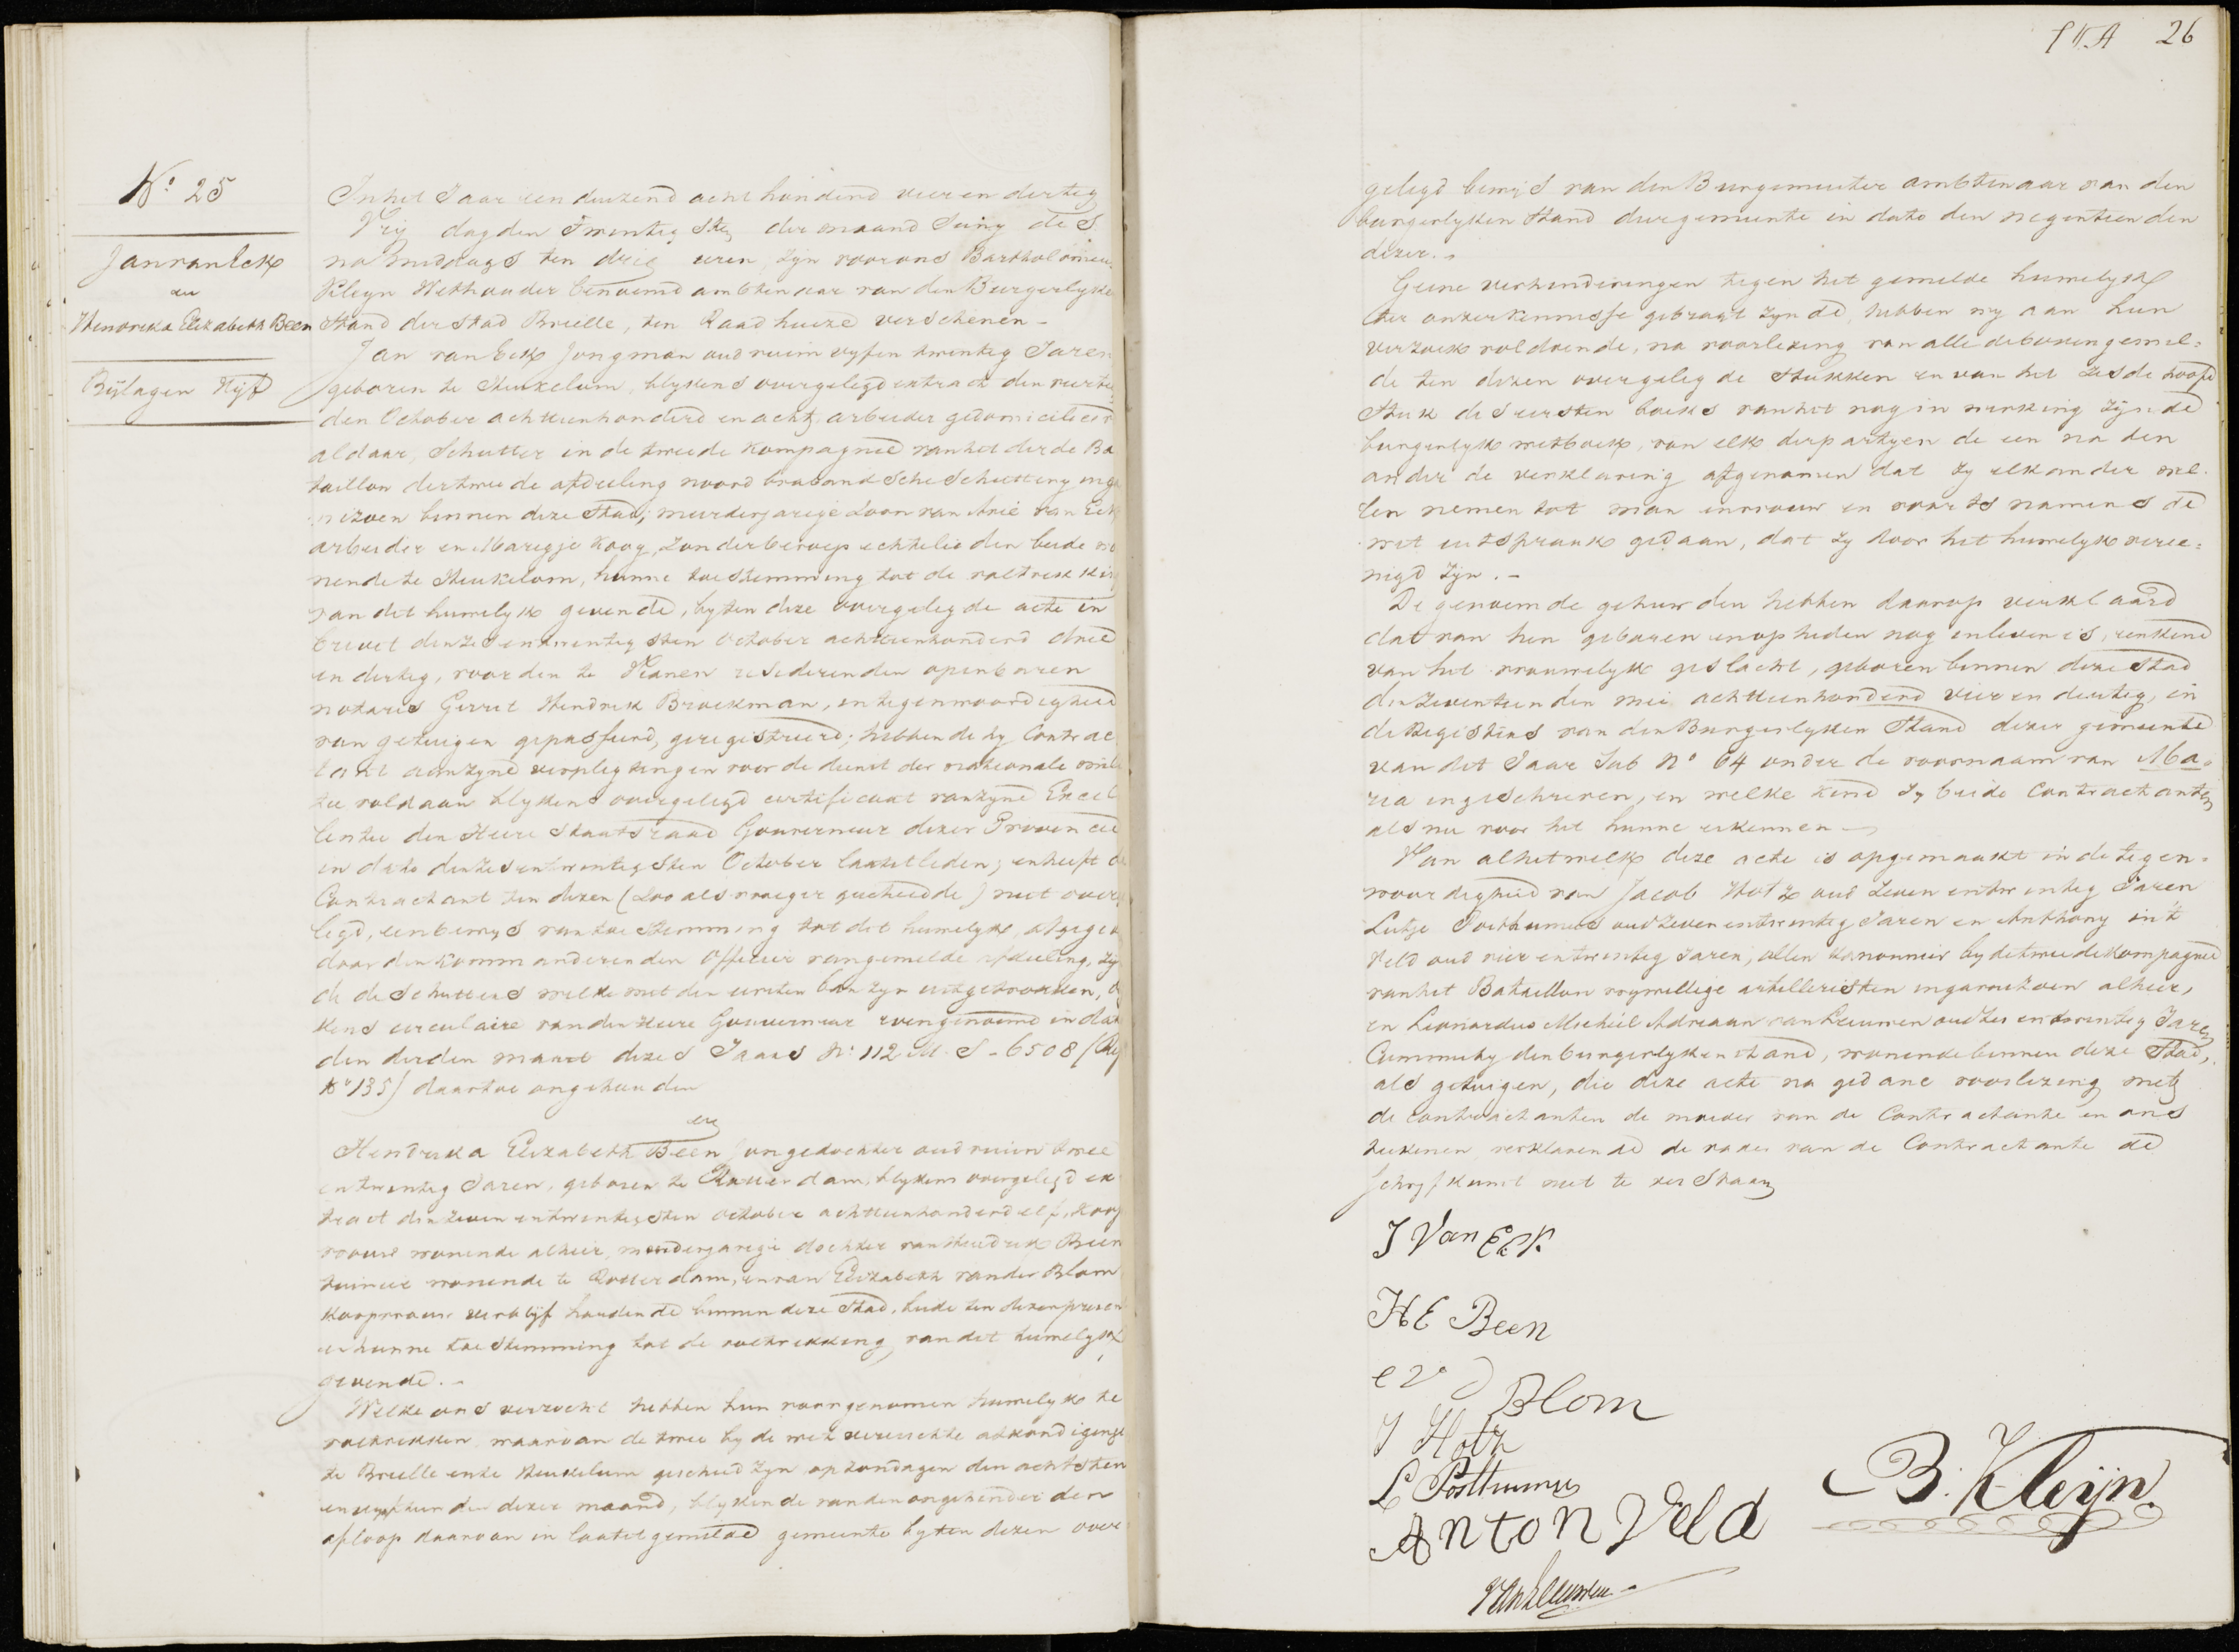 No 25
Jan van Eck
en
Hendrika Elizabeth Been
Bylagen Vyf
In het Jaar een duizend acht honderd vier en dertig
Vry dag den Twintigsten der maand Juny des
na middags ten drie uren, zyn voor ons Bartholomeu
Kleyn Wethouder benoemd ambtenaar van den Burgerlyke
Stand der stad Brielle, ten Raad huize verschenen -
Jan van Eck Jongman oud ruim vyf en twintig Jaren
geboren te Heukelum, blykens overgelegd extract den
den October achttienhonderd en acht, arbeider gedomicilieer
aldaar, Schutter in de tweede Kompagnie van het derde Ba
taillon der tweede afdeeling noord brabandsche Schuttery
binnen deze Stad; meerderjarige Zoon van Arie van Eck
arbeider en Maregje Kooy, zonder beroep echtelieden beide wo
nende te Heukelom, hunne toestemming tot de voltrekkin
van dit huwelyk gevende, by ten deze overgelegde acte in
brevet den zes en twintigsten October achttienhonderd drie
en dertig, voor den te Vianen resideerenden openbaren
notaris Gerrit Hendrik Broekman, in tegenwoordigheid
van getuigen gepasseerd, geregistreerd; hebbende hy Contrac
tant aan zyne verpligtingen voor de dienst der nationale mili
tie voldaan blykens overgelegd certificaat van zyne Excel
lentie den Heere Staatsraad Gouverneur dezer Provincie
in dato den zes en twintigsten October laatstleden; en heeft de
Contractant ten dezen (zoo als vroeger geschiedde) niet over
legd, een bewys van toestemming tot dit huwelyk, afgegeve
door den kommanderenden Officier van gemelde afdeeling, zyn
de de schutters welke met den eersten ban zyn uitgetrokken, bly
kens circulaire van den Heere Gouverneur evengenoemd in dato
den derden maart dezes Jaars No 112 M. S - 6508 (Reg
No 135) daartoe ongehouden
en
Hendrika Elizabeth Been Jongedochter oud ruim twee
en twintig Jaren, geboren te Rotterdam, blykens overgelegd ex
tract den zeven en twintigsten October achttienhonderd elf, koop
vrouw wonende alhier, minderjarige dochter van Hendrik Been
tuinier wonende te Rotterdam, en van Elizabeth van der Blom
koopvrouw verblyf houdende binnen deze Stad, beide ten dezen present
en hunne toestemming tot de voltrekking van dit huwelyk
gevende. -
Welke ons verzocht hebben hun voorgenomen huwelyk te
voltrekken, waarvan de twee by de wet vereischte afkondigingen
te Brielle en te Heukelum geschied zyn op zondagen den achtsten
en vyftienden dezer maand, blykende van den ongehinderden
afloop daarvan in laatst gemelde gemeente by ten dezen over
26
gelegd bewys van den Burgemeester ambtenaar van den
burgerlyken Stand dier gemeente in dato den negentienden
dezer.
Geene verhinderingen tegen het gemelde huwelyk
ter onzer kennisse gebragt zynde, hebben wy aan hun
verzoek voldoende, na voorlezing van alle de bovengemel=
de ten dezen overgelegde stukken en van het zesde hoofd
Stuk des eersten boeks van het nog in werking zynde
burgerlyk wetboek, van elk der partyen de een na den
ander de verklaring afgenomen dat zy elkander wil=
len nemen tot man en vrouw en voorts namens de
wet uitspraak gedaan, dat zy door het huwelyk veree=
nigd zyn. -
De genoemde gehuwden hebben daarop verklaard
dat van hen geboren en op heden nog in leven is, een kind
van het vrouwelyk geslacht, geboren binnen deze Stad
den zeventienden mei achttienhonderd vier en dertig, in
de Registers van den Burgerlyken Stand dezer gemeente
van dit Jaar Sub No 64 onder de voornaam van Ma=
ria ingeschreven, en welke kind zy beide Contractanten
als nu voor het hunne erkennen -
Van al hetwelk deze acte is opgemaakt in de tegen=
woordigheid van Jacob Hotz oud zeven en twintig Jaren
Lutje Posthumus oud zeven en twintig Jaren en Anthony in 't
Veld oud vier en twintig Jaren, allen kanonnier by de tweede kompagnie
van het Bataillon vrywillige artilleristen in garnizoen alhier,
en Leonardus Michiel Adriaan van Leeuwen oud zes en twintig Jaren
Commies by den burgerlyken stand, wonende binnen deze Stad,
als getuigen, die deze acte na gedane voorlezing met
de contractanten de moeder van de Contractante en ons
tekenen verklarende de vader van de Contractante de
Schryfkunst niet te verstaan
J Van Eck
H E Been
e v d Blom
J Hotz
L Posthumus
Anton Veld
B. Kleijn
Van Leeuwen